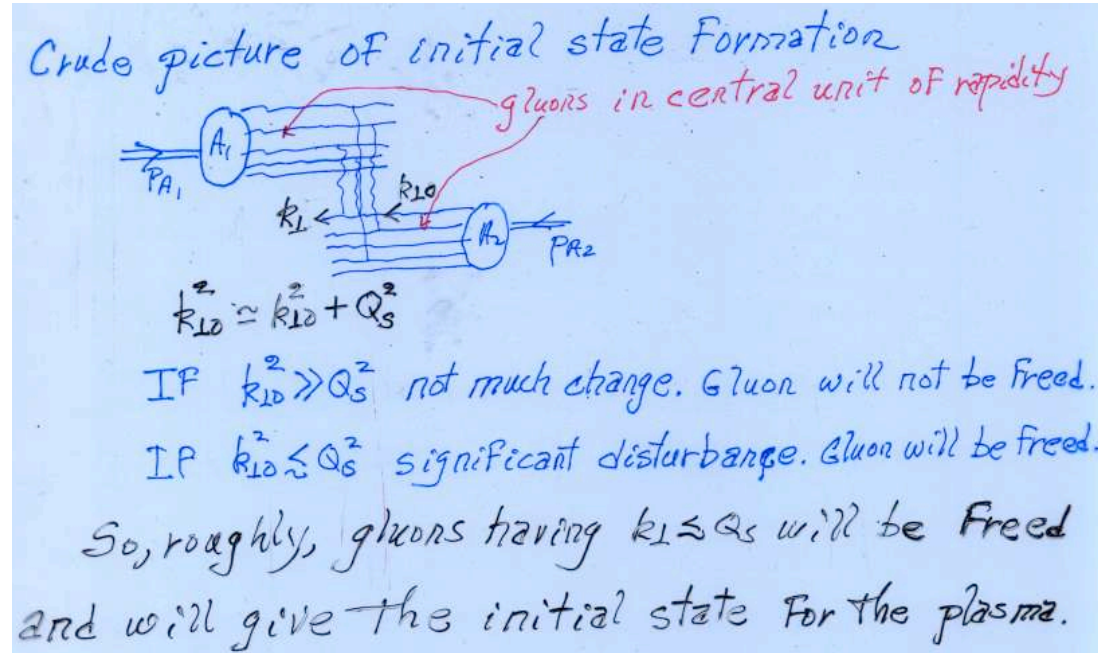 Crude picture of initial state Formation
gluons in central unit of rapidity
A₁
P_A₁
k_⊥0
k_⊥
A₂
P_A₂
k²_⊥0 ≃ k²_⊥0 + Q²_s
IF k²_⊥0 ≫ Q²_s not much change. Gluon will not be freed.
IF k²_⊥0 ≲ Q²_s significant disturbance. Gluon will be freed.
So, roughly, gluons having k_⊥ ≲ Q_s will be Freed
and will give the initial state For the plasma.